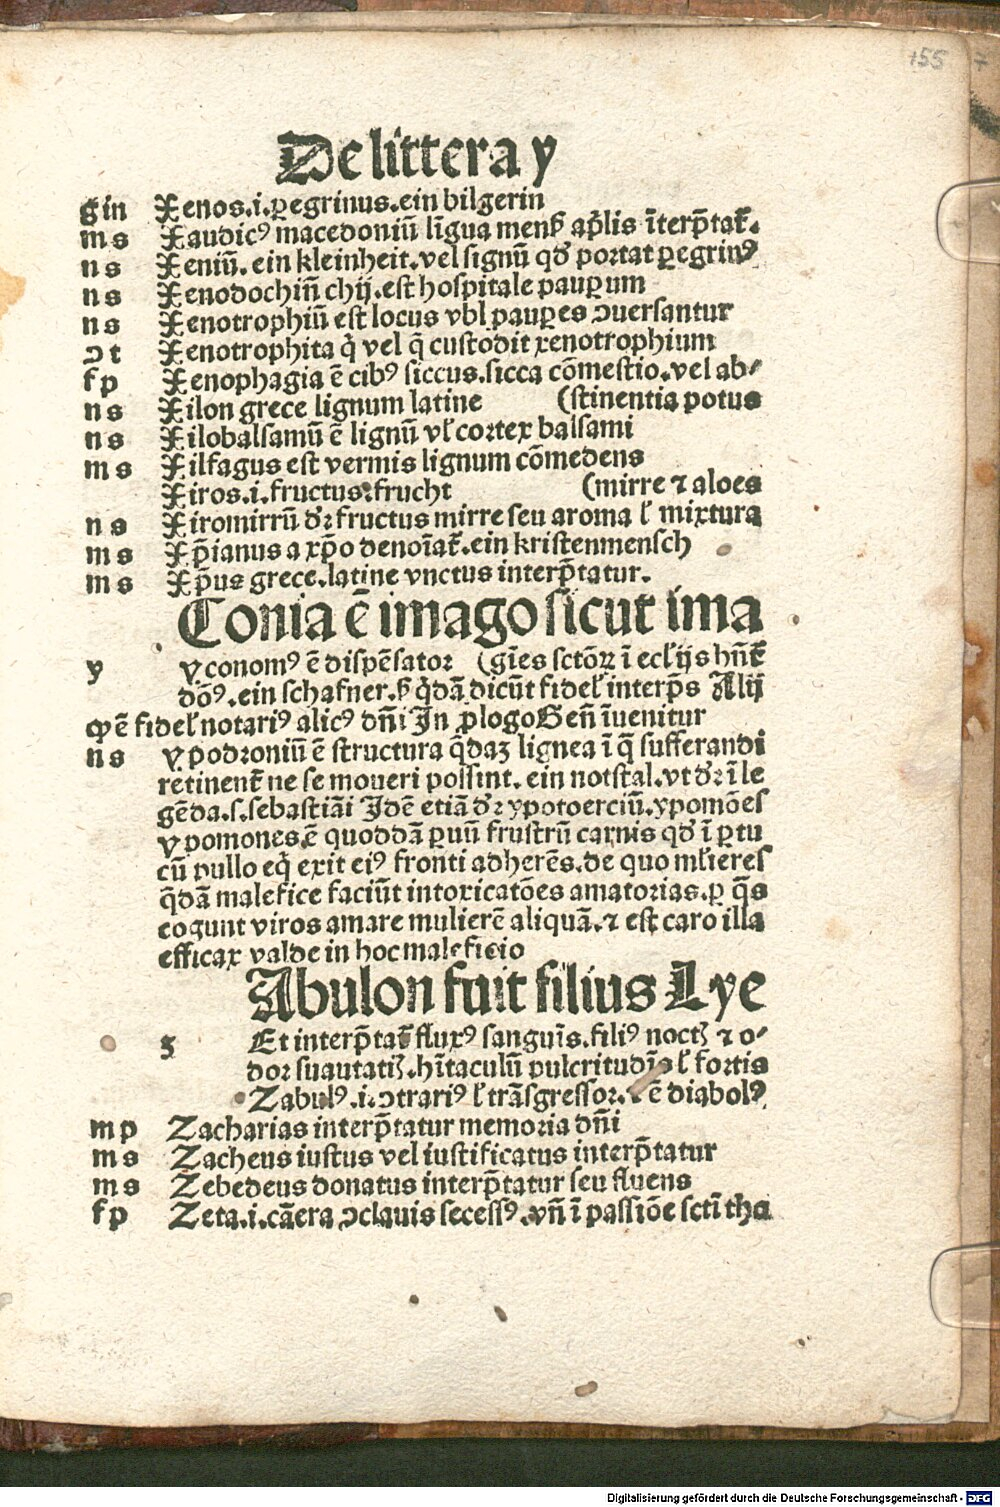 155 7
De littera y
g̃in Xenos.i.ꝑegrinus.ein bilgerin
m s Xaudicꝰ macedoniũ lĩgua menẜ apͥlis ĩterp̃tat᷑.
n s Xeniũ.ein kleinheit.vel signũ qđ portat ꝑegrinꝰ
n s Xenodochiũ chij.est hospitale pauꝑum
n s Xenotrophiũ est locus vbl pauꝑes ↄuersantur
ↄ t Xenotrophita q̇ vel q̃ custodit xenotrophium
f p Xenophagia ẽ cibꝰ siccus.sicca cõmestio.vel ab⸗
n s Xilon grece lignum latine (stinentia potus
n s Xilobalsamũ ẽ lignũ vł cortex balsami
m s Xilfagus est vermis lignum cõmedens
Xiros.i.fructus.frucht (mirre ⁊ aloes
n s Xiromirrũ dꝛ̃ fructus mirre seu aroma ł mixtura
m s Xp̃ianus a xp̃o denoĩat᷑.ein kristenmensch
m s Xp̃us grece.latine vnctus interp̃tatur.
Conia ẽ imago sicut ima
y yconomꝰ ẽ dispẽsator (gĩes sctõꝝ ĩ eccłijs hñt᷑
dõꝰ.ein schafner.ẜ q̇dã dicũt fideł interp̃s Alij
ꝙ ẽ fideł notariꝰ alicꝰ dñi In ꝓlogo Geñ ĩuenitur
n s ypodroniũ ẽ structura q̃daꝫ lignea ĩ q̃ sufferandi
retinent᷑ ne se moueri possint.ein notstal.vt dꝛ̃ ĩ le
gẽda.s.sebastiãi Idẽ etiã dꝛ̃ ypotoerciũ.ypomões
ypomones ẽ quoddã ꝑuũ frustrũ carnis qđ ĩ ꝑtu
cũ pullo eq̇ exit eiꝰ fronti adherẽs.de quo mľieres
q̃dã malefice faciũt intoxicatões amatorias.ꝑ q̃s
cogunt viros amare mulierẽ aliquã.⁊ est caro illa
efficax valde in hoc maleficio
Abulon fuit filius Lye
z Et interp̃tat᷑ fluxꝰ sanguĩs.filiꝰ noctꝭ ⁊ o⸗
dor suauitatꝭ.hĩtaculũ pulcritudĩs ł fortis
Zabulꝰ.i.ↄtrariꝰ ł trãsgressor.⁊ ẽ diabolꝰ
m p Zacharias interp̃tatur memoria dñi
m s Zacheus iustus vel iustificatus interp̃tatur
m s Zebedeus donatus interp̃tatur seu fluens
f p Zeta.i.cãera ↄclauis secessꝰ.vñ ĩ passiõe scti tho
Digitalisierung gefördert durch die Deutsche Forschungsgemeinschaft - DFG